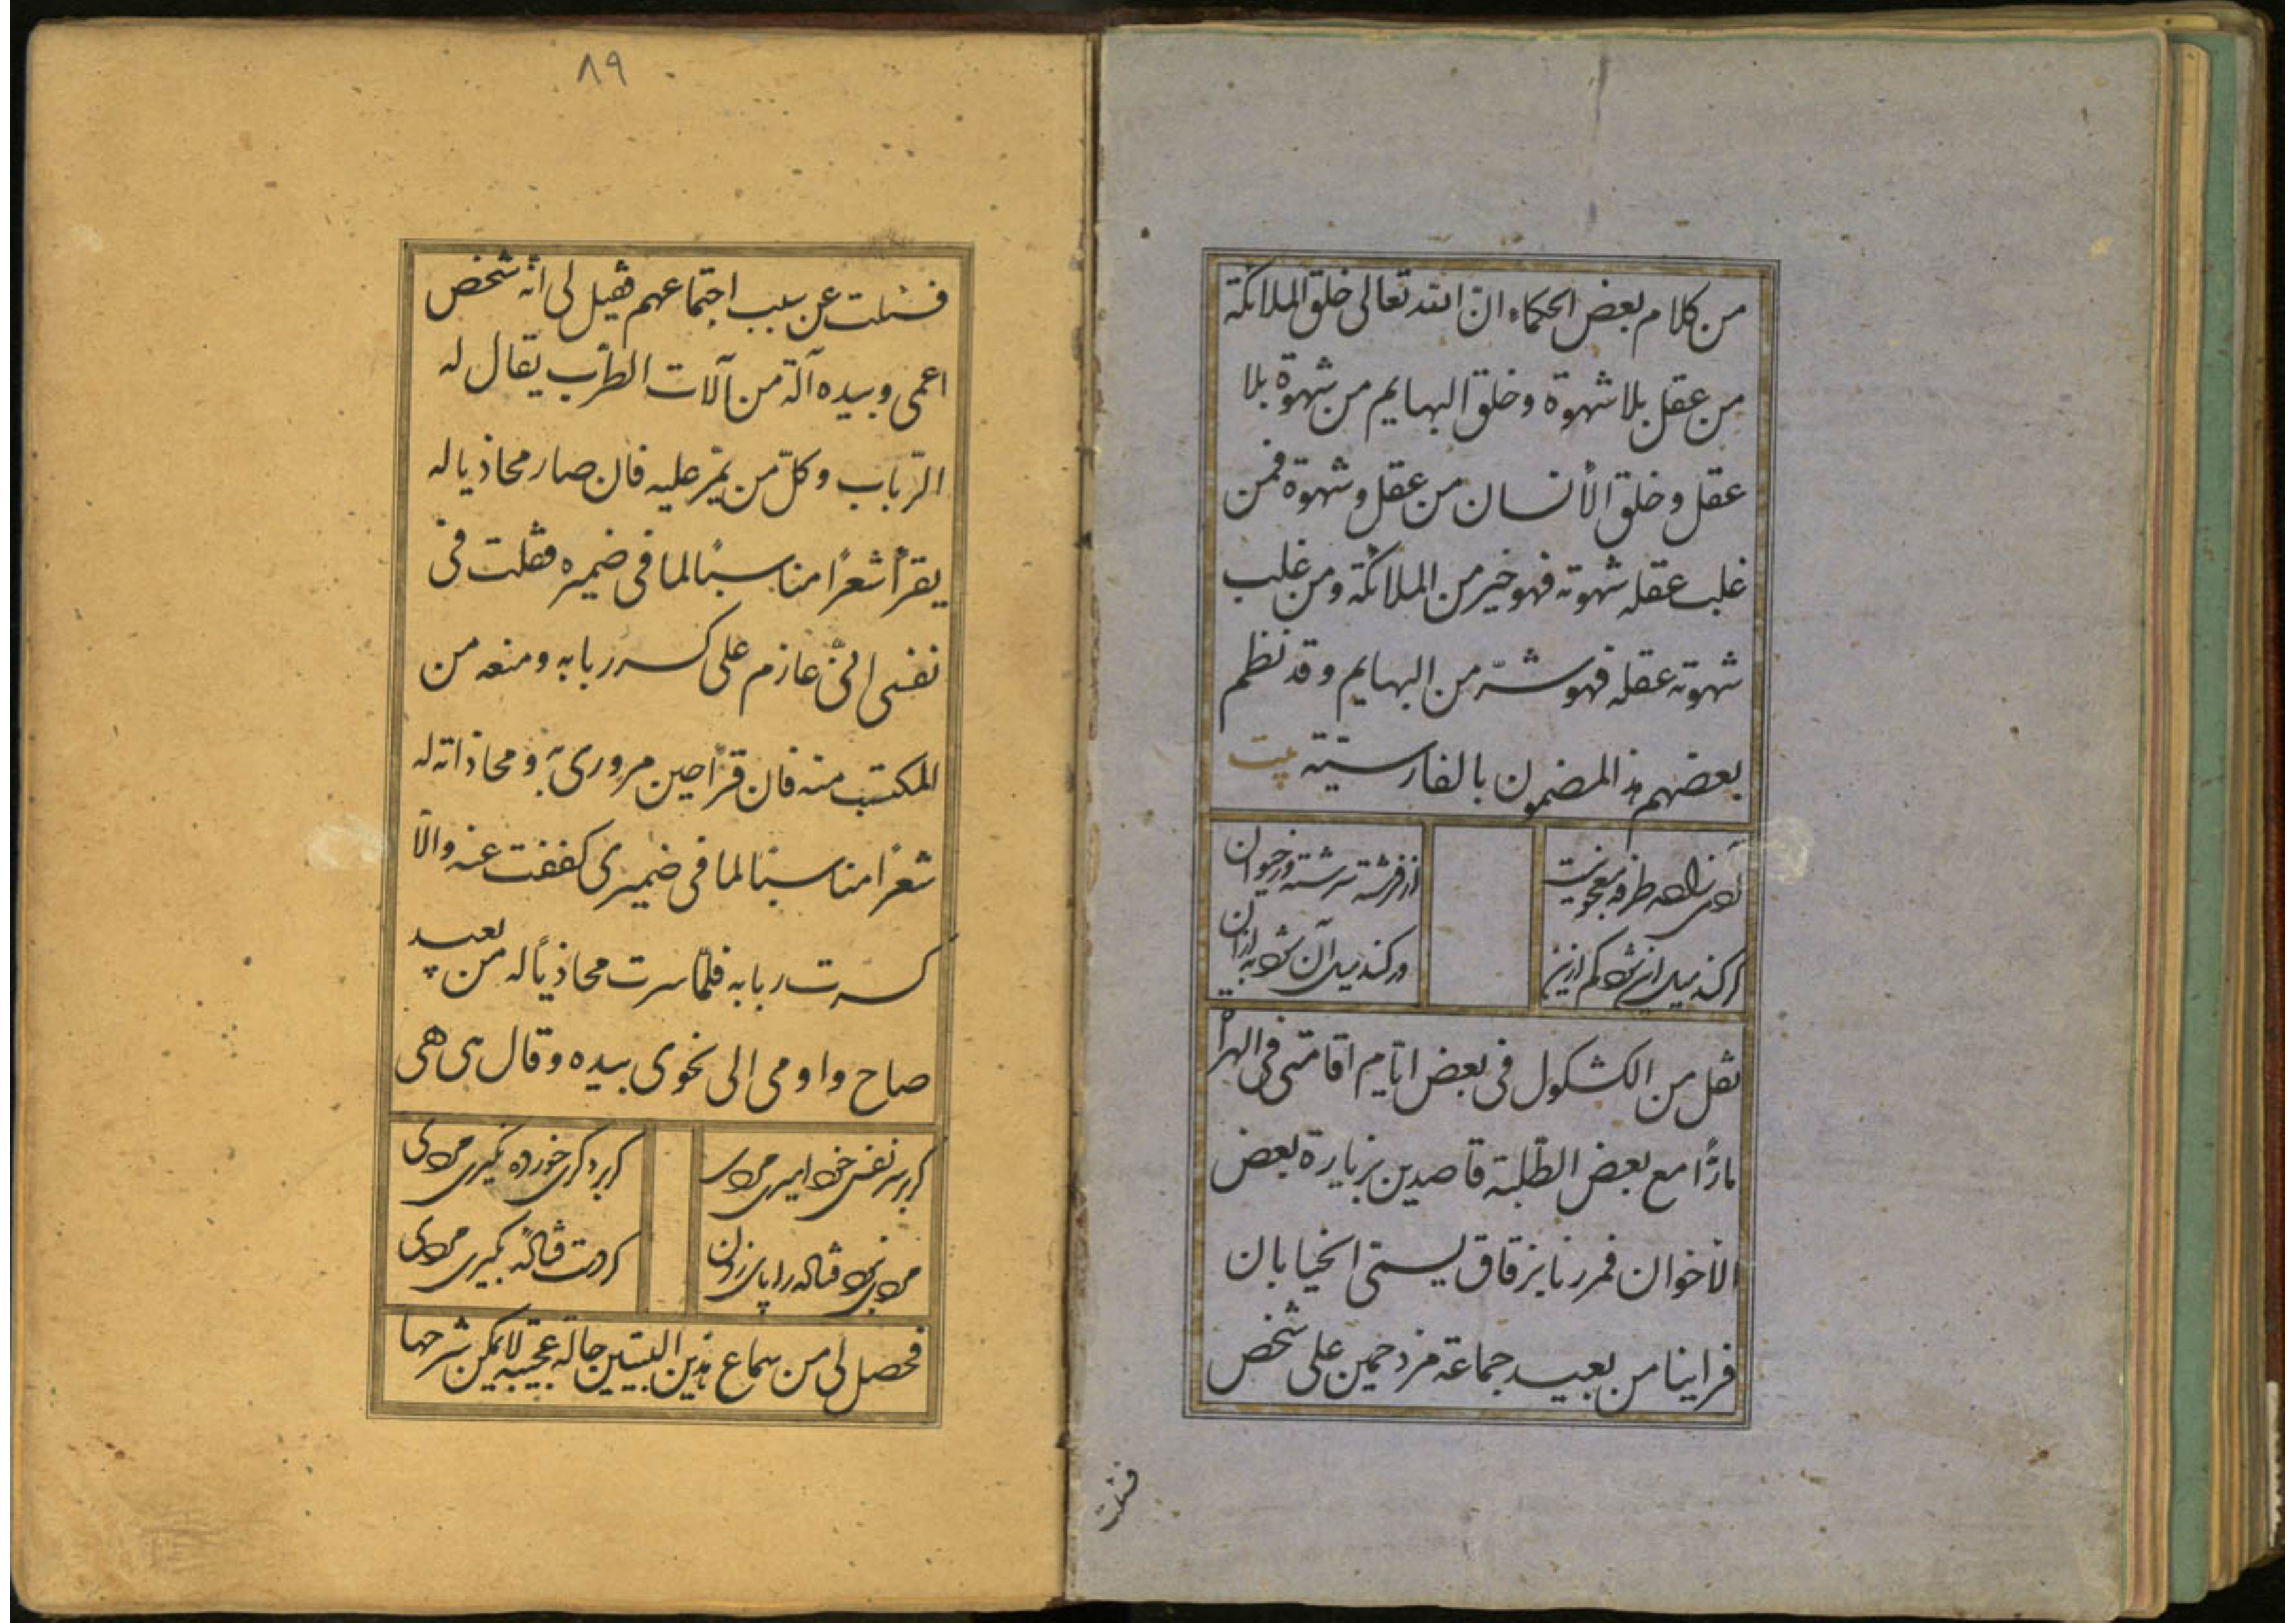 من كلام بعض الحكماء انّ الله تعالى خلق الملائكة
من عقل بلا شهوة وخلق البهايم من شهوة بلا
عقل وخلق الأنسان من عقل وشهوة فمن
غلب عقله شهوته فهو خير من الملائكة ومن غلب
شهوته عقله فهو شرّ من البهايم وقد نظم
بعضهم هذا المضمون بالفارسيّة بيت
آدمی زاده طرفه معجونیست
از فرشته سرشته وز حیوان
گر کند میل این شود کم ازین
ور کند میل آن شود به ازان
نقل من الكشكول فى بعض ايّام اقامتى فى الهرا
مارًّا مع بعض الطّلبة قاصدين بزيارة بعض
الأخوان فمررنا بزقاق يسمّى الخيابان
فراينا من بعيد جماعة مزدحمين على شخص
فسئلت
٨٩
فسئلت عن سبب اجتماعهم فقيل لى انّه شخص
اعمى وبيده آلة من آلات الطّرب يقال له
الرّباب وكلّ من يمرّ عليه فان صار محاذيا له
يقرأ شعرًا مناسبًا لما فى ضميره فقلت فى
نفسى انّى عازم على كسر ربابه ومنعه من
المكتسب منه فان قرأ حين مرورى به ومحاذاته له
شعرًا مناسبًا لما فى ضميرى كففت عنه والّا
كسرت ربابه فلمّا سرت محاذيًا له من بعيد
صاح واومى الى نحوى بيده وقال هى هى
گر بر سر نفس خود امیری مردی
گر بر دگری خورده نگیری مردی
مردی نبود فتاده را پای زدن
گر دست فتاده بگیری مردی
فحصل لى من سماع هذين البيتين حالة عجيبة لا يمكن شرحها